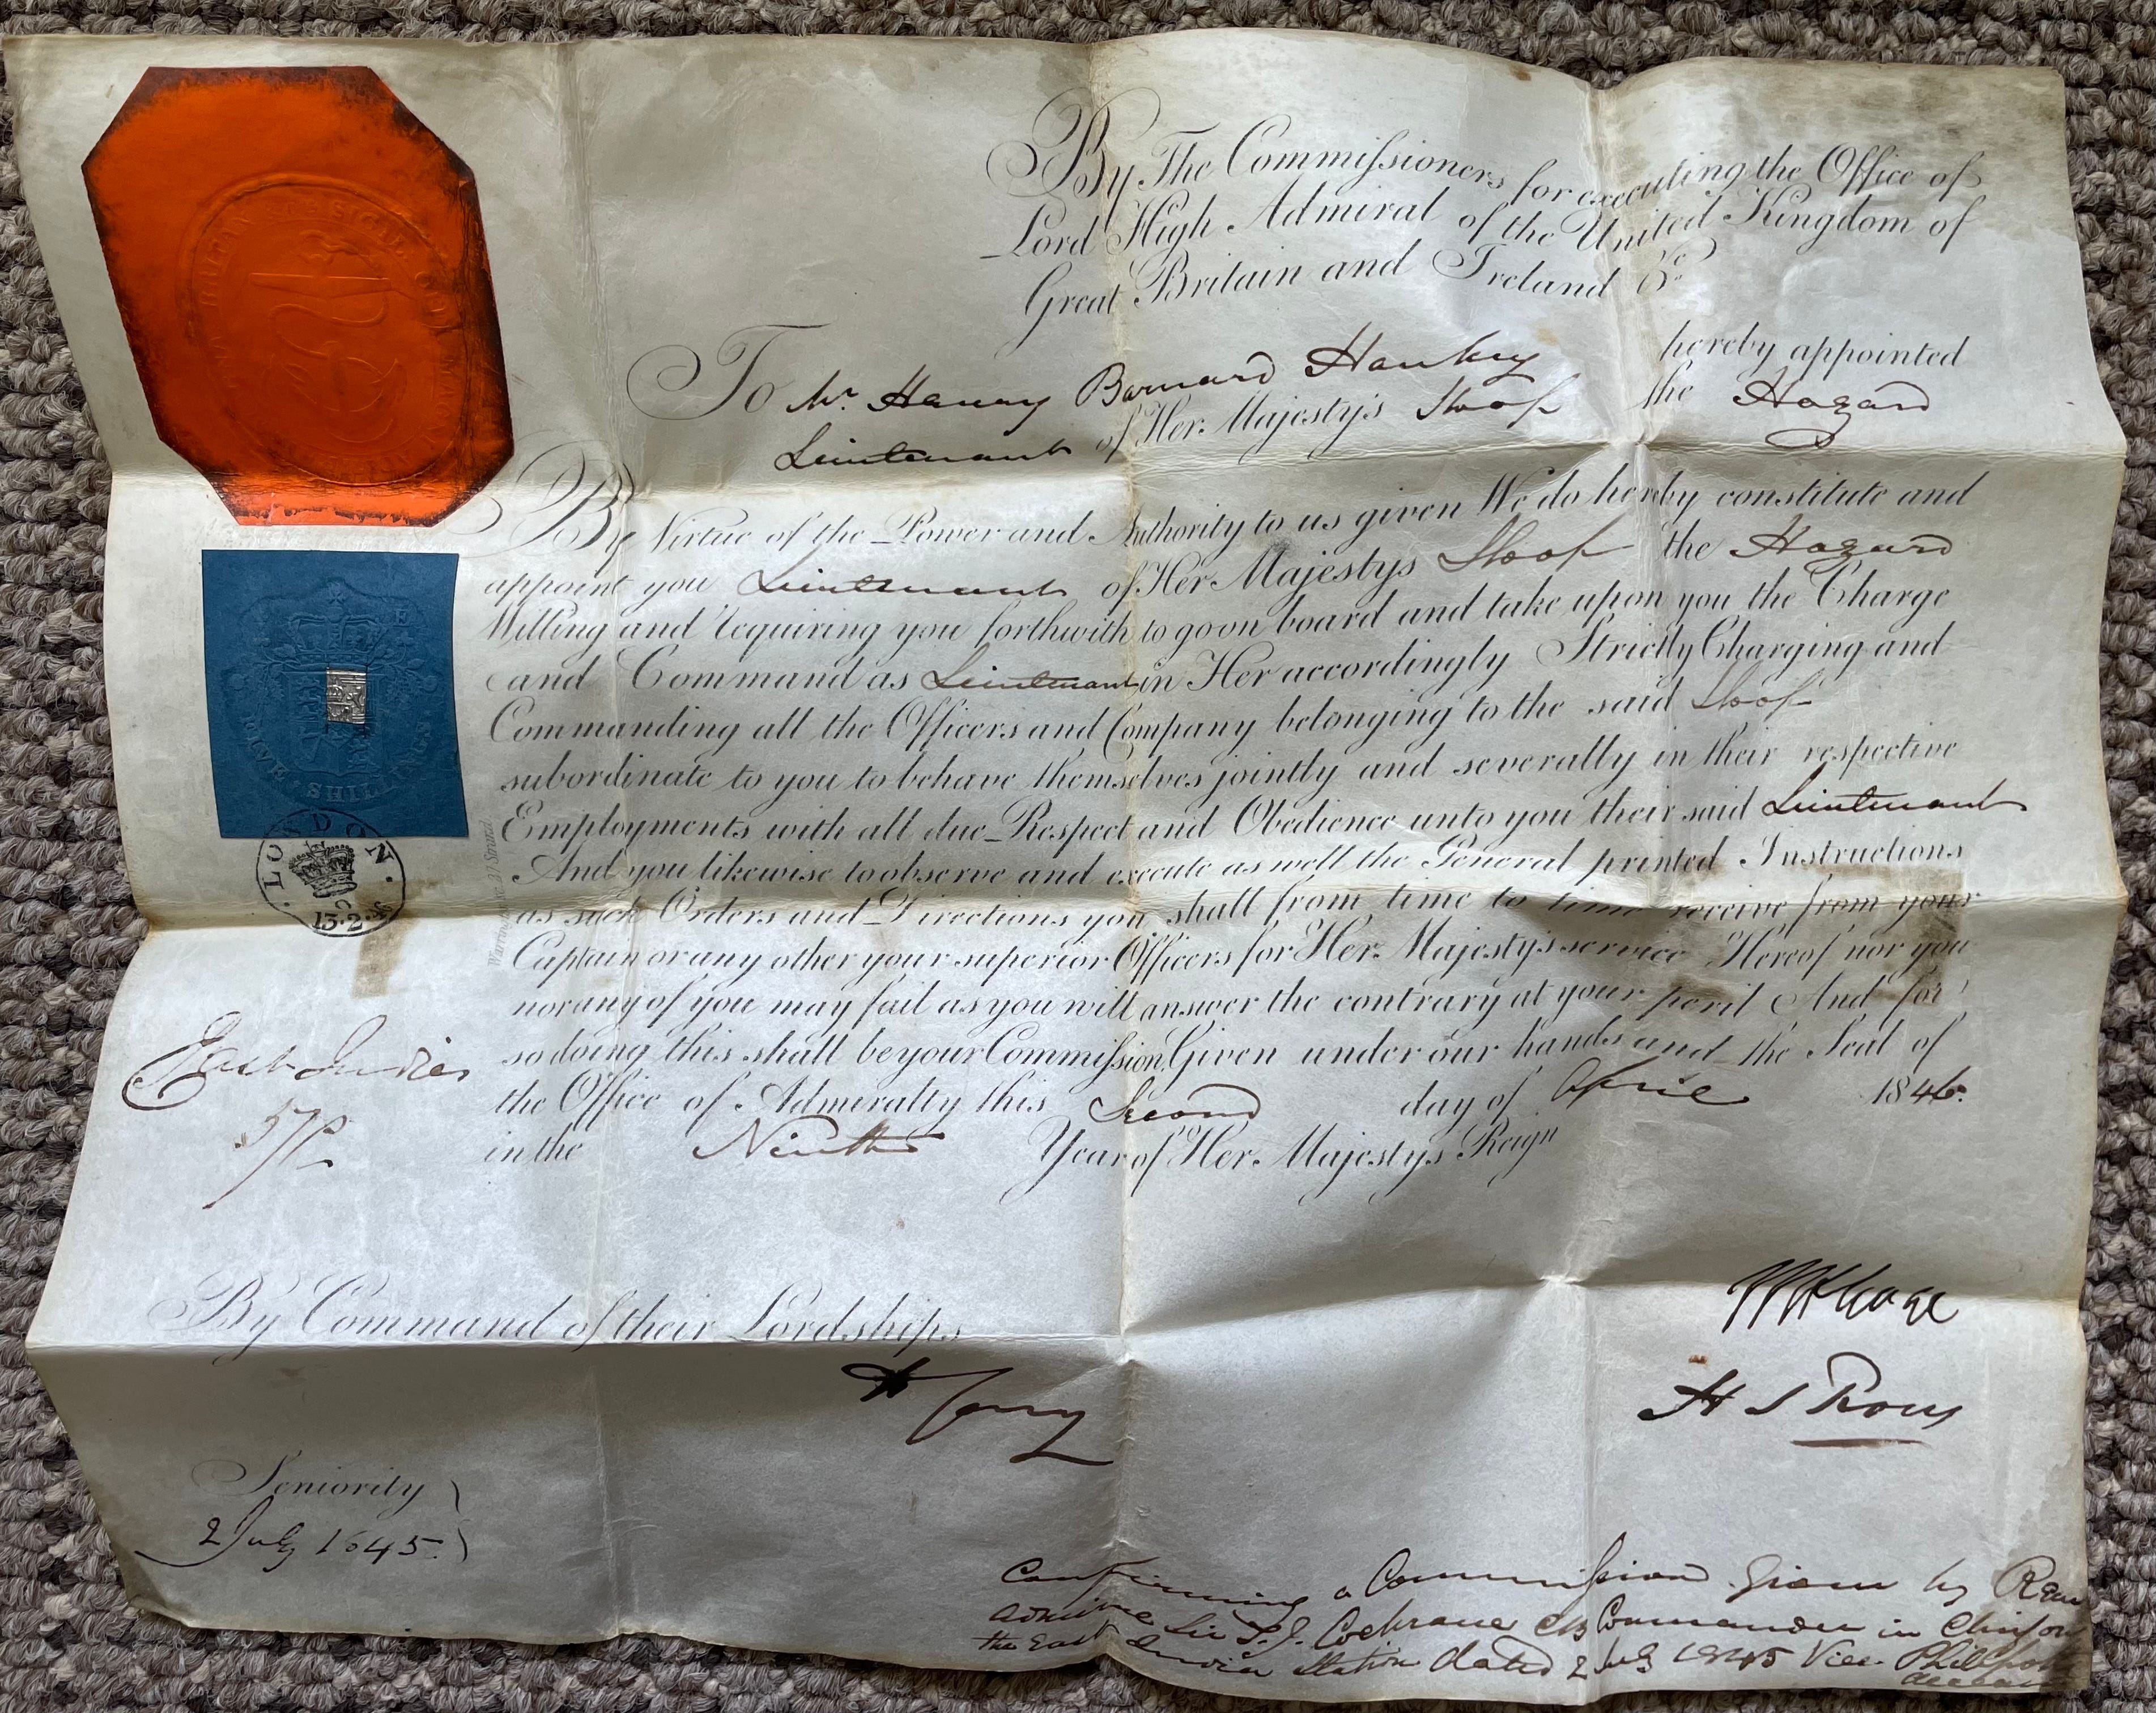 By The Commissioners for executing the Office of
Lord High Admiral of the United Kingdom of
Great Britain and Ireland &c
To Mr. Henry Barnard Hankey hereby appointed
Lieutenant of Her Majesty's Sloop the Hazard
By Virtue of the Power and Authority to us given We do hereby constitute and
appoint you Lieutenant of Her Majestys Sloop the Hazard
Willing and requiring you forthwith to go on board and take upon you the Charge
and Command as Lieutenant in Her accordingly Strictly Charging and
Commanding all the Officers and Company belonging to the said Sloop
subordinate to you to behave themselves jointly and severally in their respective
Employments with all due Respect and Obedience unto you their said Lieutenant
And you likewise to observe and execute as well the General printed Instructions
as such Orders and Directions you shall from time to time receive from your
Captain or any other your superior Officers for Her Majesty's service Hereof nor you
nor any of you may fail as you will answer the contrary at your peril And for
so doing this shall be your Commission Given under our hands and the Seal of
the Office of Admiralty this Second day of April 1846.
in the Ninth Year of Her Majestys Reign
TWELVE SHILLINGS
LONDON
13.2.46
31 Strand
East Indies
By Command of their Lordships
H S Rous
Seniority
2 July 1845.
Confirming a Commission given by Rear
Admiral Sir T. J. Cochrane CB Commander in Chief on
the East India Station dated 2 July 1845 Vice